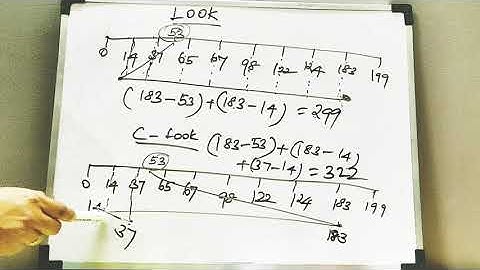 LOOK
53
0 14 37 65 67 98 122 124 183 199
(183-53)+(183-14) = 299
C-Look (183-53)+(183-14)
+(37-14)=322
53
0 14 37 65 67 98 122 124 183 199
14
37 183